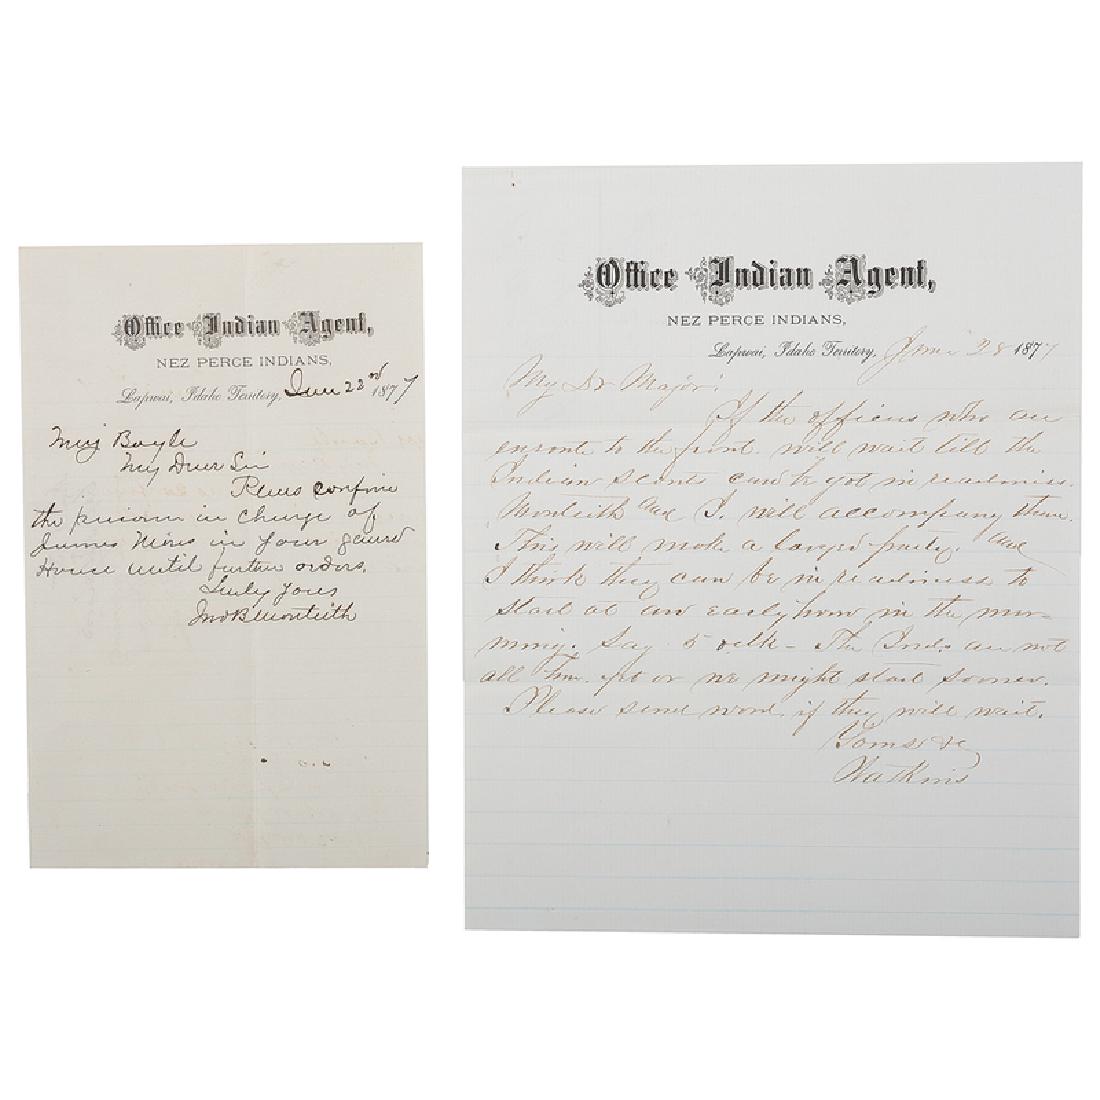 Office Indian Agent,
NEZ PERCE INDIANS,
Lapwai, Idaho Territory, June 23rd 1877
Maj Boyle
My Dear Sir
Please confine
the prisoner in charge of
James Hines in your guard
House until further orders.
Truly yours
Jno B Monteith
Office Indian Agent,
NEZ PERCE INDIANS,
Lapwai, Idaho Territory, June 28 1877
My Dr Major:
If the officers who are
enroute to the front will wait till the
Indian Scouts can be got in readiness.
Monteith and I will accompany them.
This will make a large party. and
I think they can be in readiness to
start at an early hour in the mor-
ning. Say 5 oclk - The Inds. are not
all here yet or we might start sooner.
Please send word if they will wait.
Yours &c
Watkins